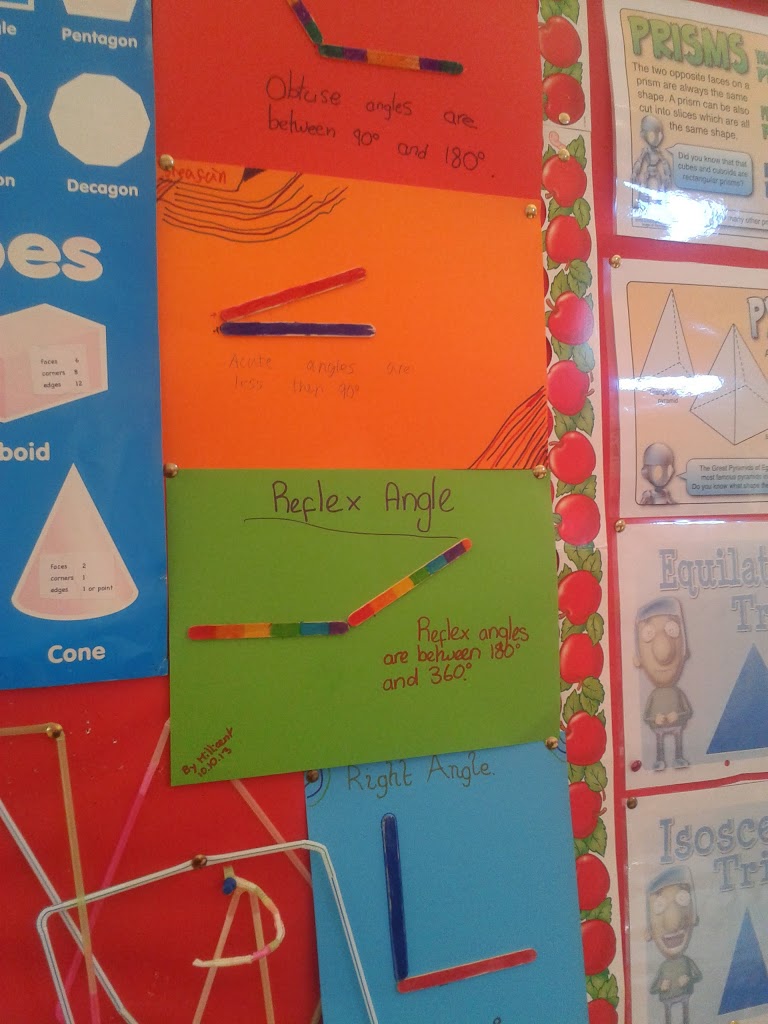 Pentagon
Decagon
faces 6
corners 8
edges 12
faces 2
corners 1
edges 1 or point
Cone
Obtuse angles are
between 90° and 180°.
Acute angles are
less than 90°
Reflex Angle
Reflex angles
are between 180°
and 360°.
By Millicent
10.10.13
Right Angle.
PRISMS
The two opposite faces on a
prism are always the same
shape. A prism can also be
cut into slices which are all
the same shape.
Did you know that
cubes and cuboids are
rectangular prisms?
many other
The Great Pyramids of
most famous pyramids
Do you know what shape